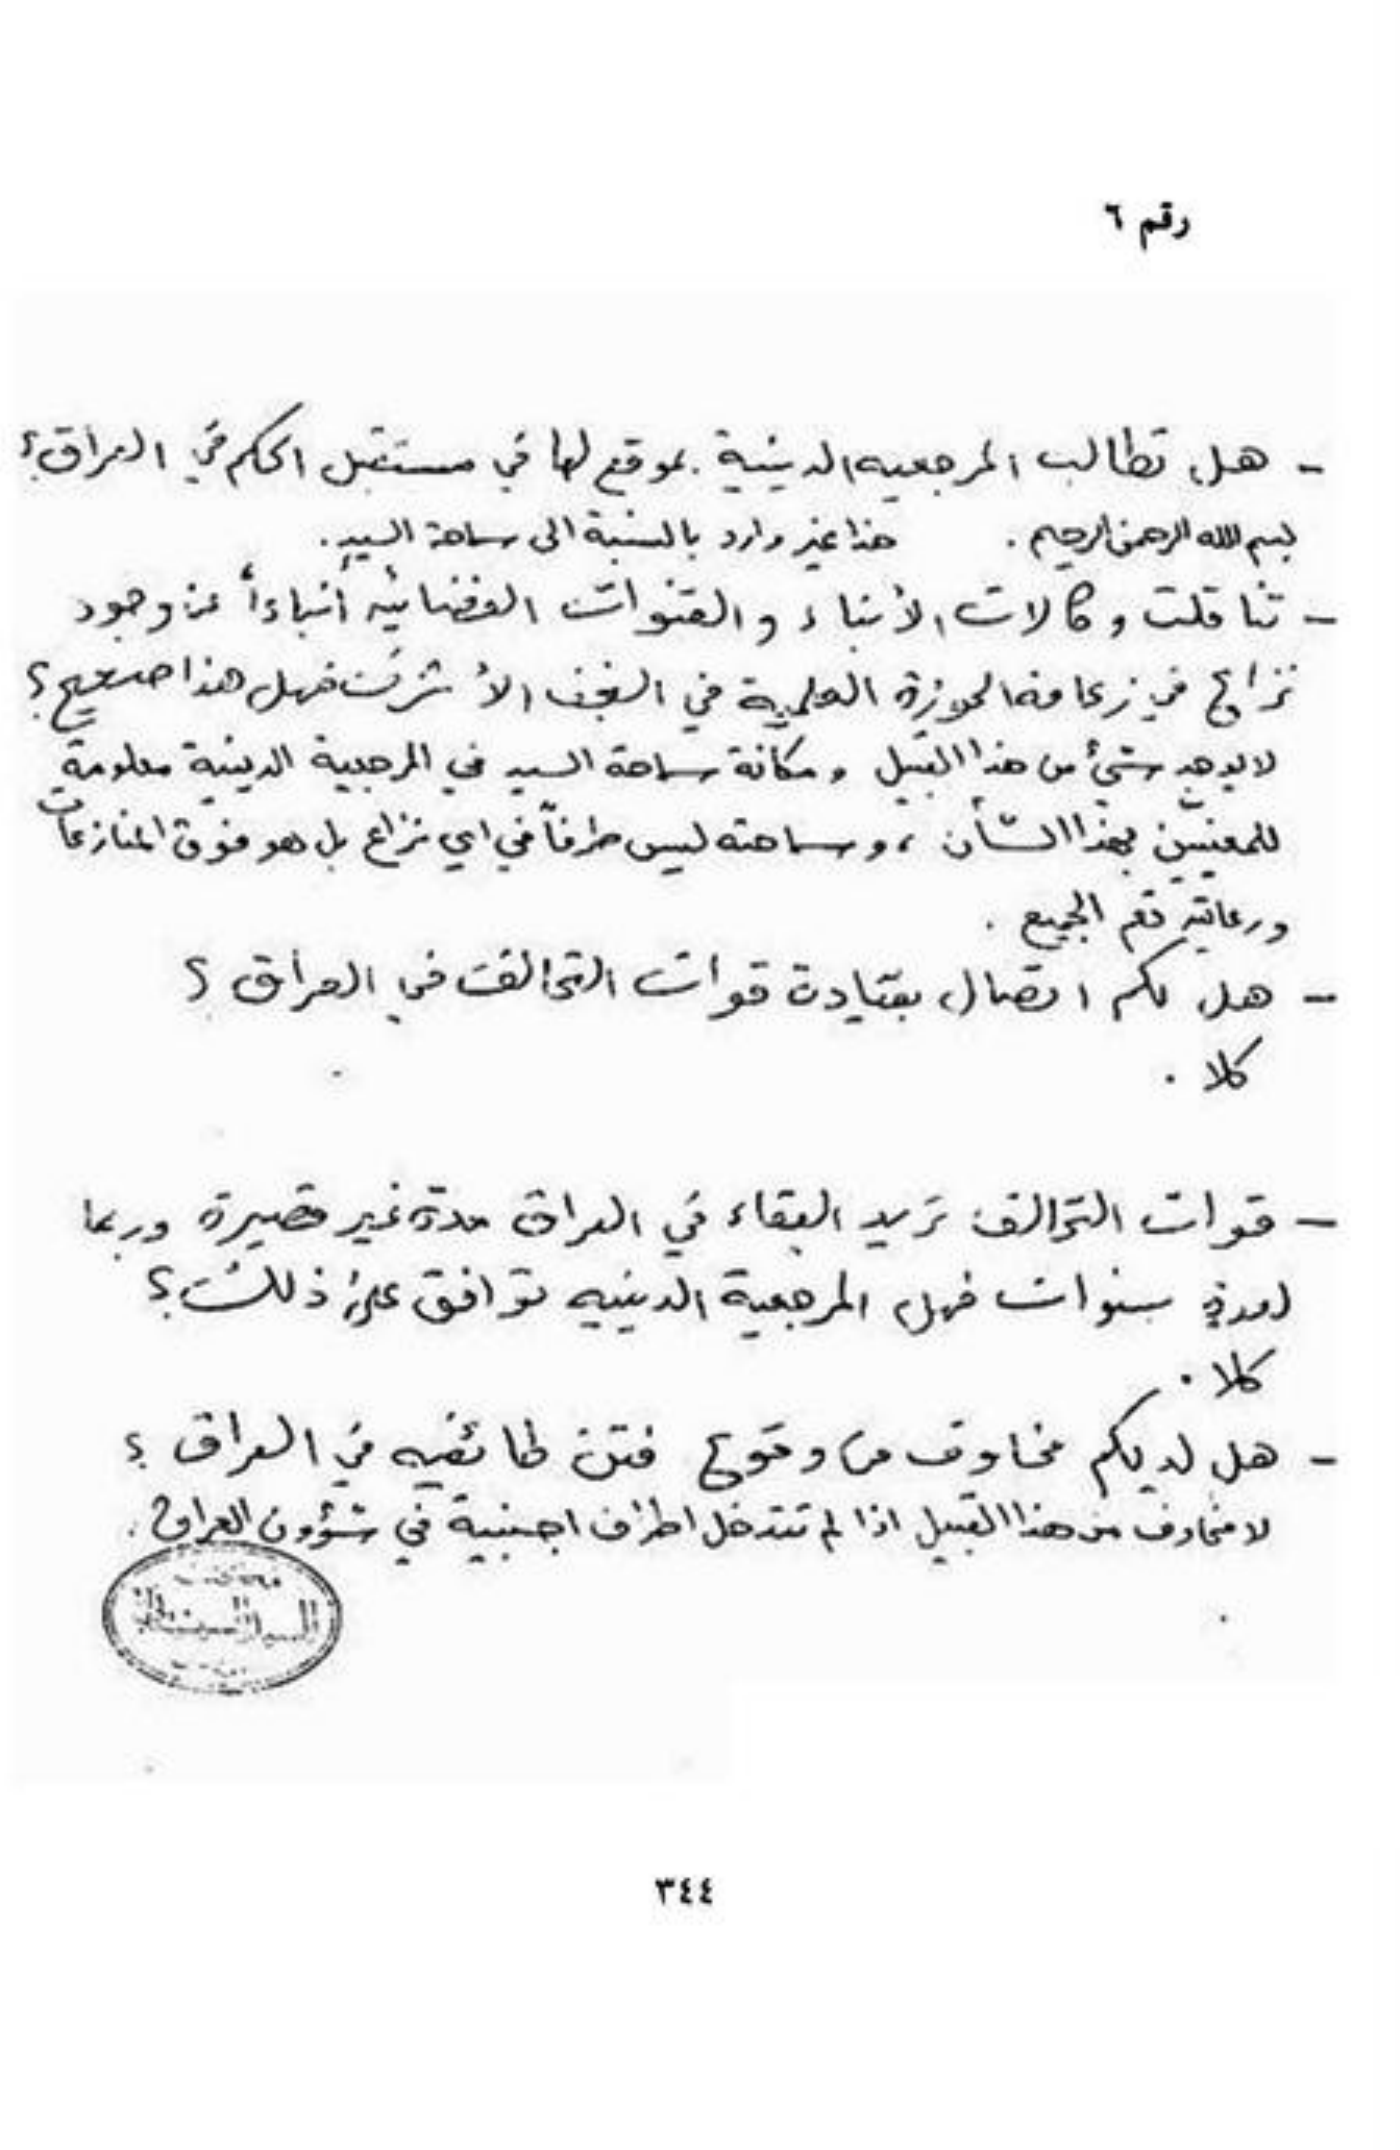 رقم ٦
- هل تطالب المرجعيه الدينية بموقع لها في مستقبل الحكم في العراق؟
بسم الله الرحمن الرحيم . هذا غير وارد بالنسبة الى سماحة السيد .
- تناقلت وكالات الأنباء والقنوات الفضائيه أنباءاً عن وجود
نزاع في زعامة الحوزة العلمية في النجف الأشرف فهل هذا صحيح؟
لا يوجد شيء من هذا القبيل ومكانة سماحة السيد في المرجعية الدينية معلومة
للمعنيّين بهذا الشأن ، وسماحته ليس طرفاً في اي نزاع بل هو فوق المنازعات
ورعايته تعم الجميع .
- هل لكم اتصال بقيادة قوات التحالف في العراق ؟
كلا .
- قوات التحالف تريد البقاء في العراق مدة غير قصيرة وربما
لمدة سنوات فهل المرجعية الدينيه توافق على ذلك؟
كلا .
- هل لديكم مخاوف من وقوع فتن طائفيه في العراق ؟
لا مخاوف من هذا القبيل اذا لم تتدخل اطراف اجنبية في شؤون العراق .
السيد السيستاني
٣٤٤